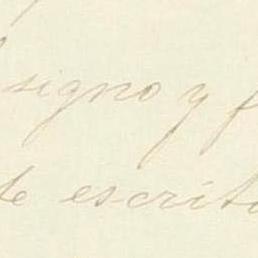 signo y f
de escrito